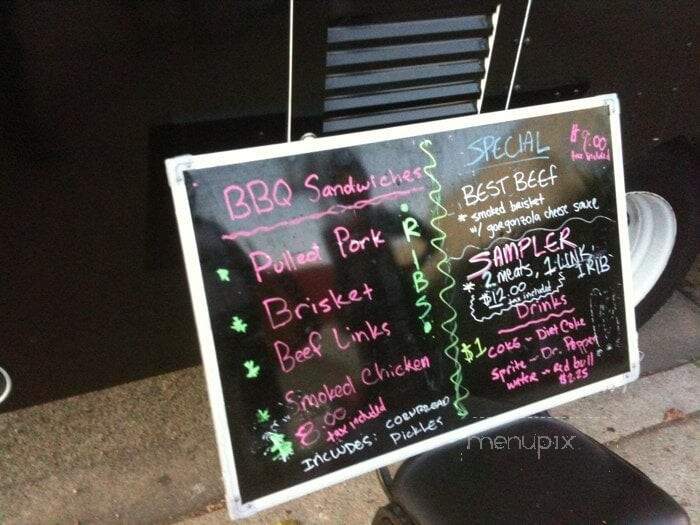 BBQ Sandwiches
* Pulled Pork
* Brisket
* Beef Links
* Smoked Chicken
$8.00
tax included
INCLUDES: CORNBREAD
Pickles
• RIBS •
SPECIAL
$9.00
tax included
BEST BEEF
* smoked brisket
w/ gorgonzola cheese sauce
SAMPLER
* 2 meats, 1 LINK,
1 RIB
$12.00
tax included
Drinks
$1 COKE - Diet Coke
Sprite - Dr. Pepper
water - Red bull
$2.25
menupix